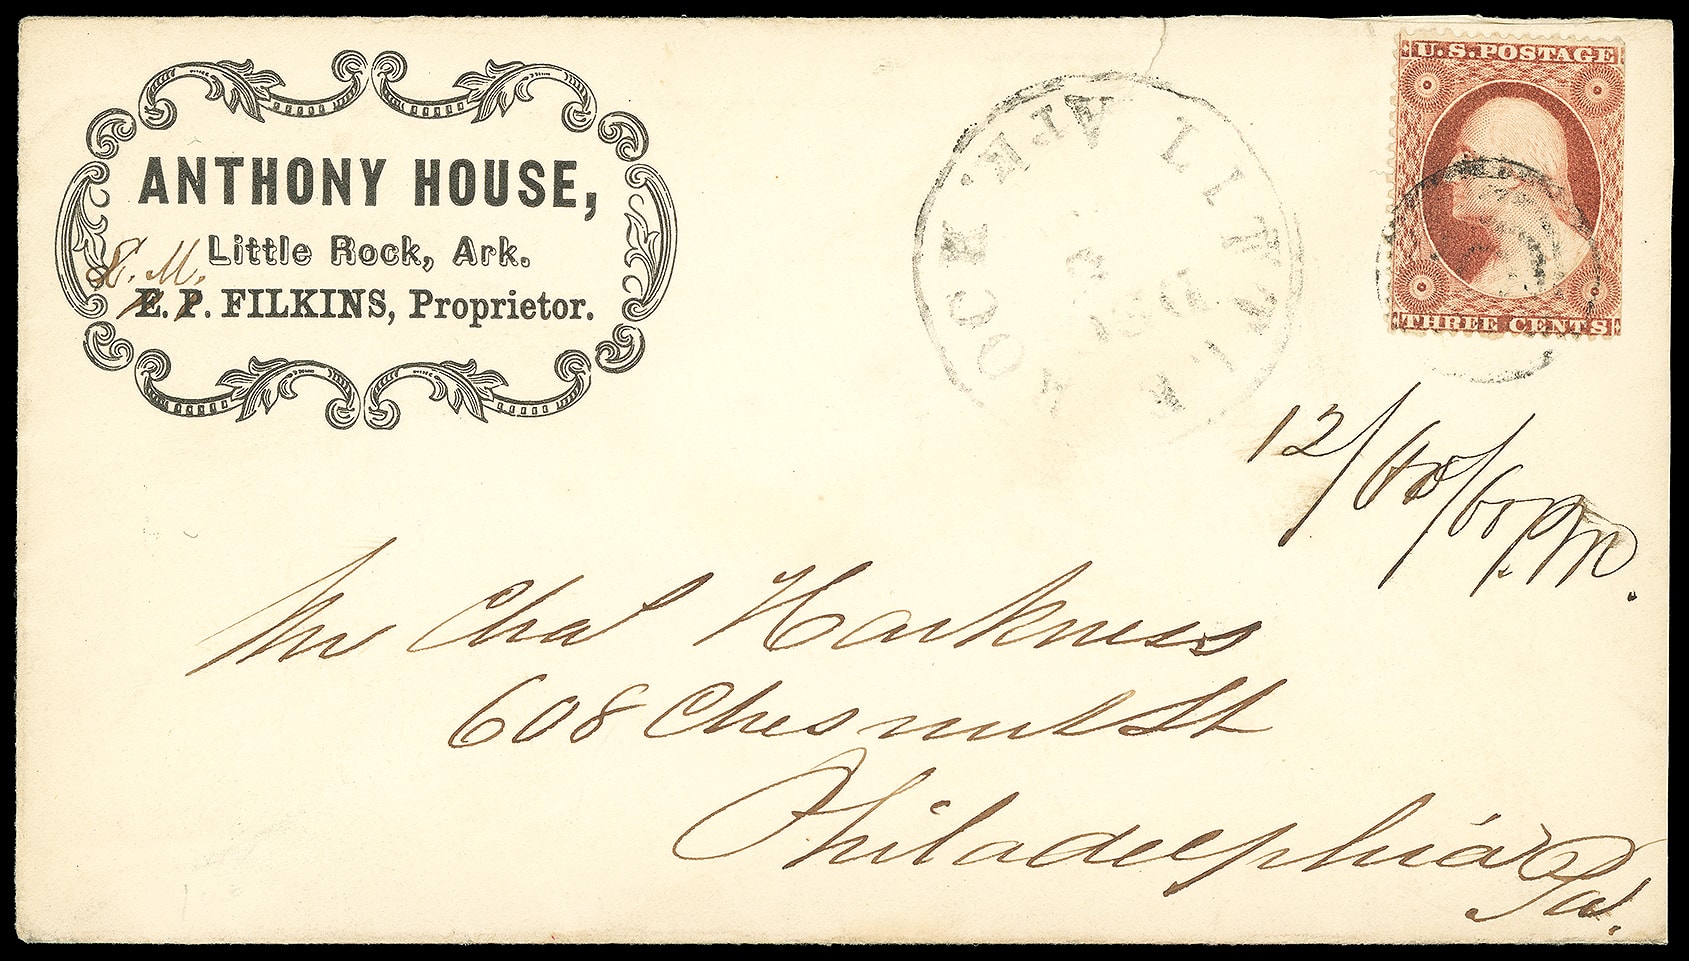 ANTHONY HOUSE,
Little Rock, Ark.
S. M.
E. P. FILKINS, Proprietor.
LITTLE ROCK ARK.
DEC
U.S. POSTAGE
THREE CENTS
P.M.
Mr Chas Harkness
608 Chesnut St
Philadelphia Pa.